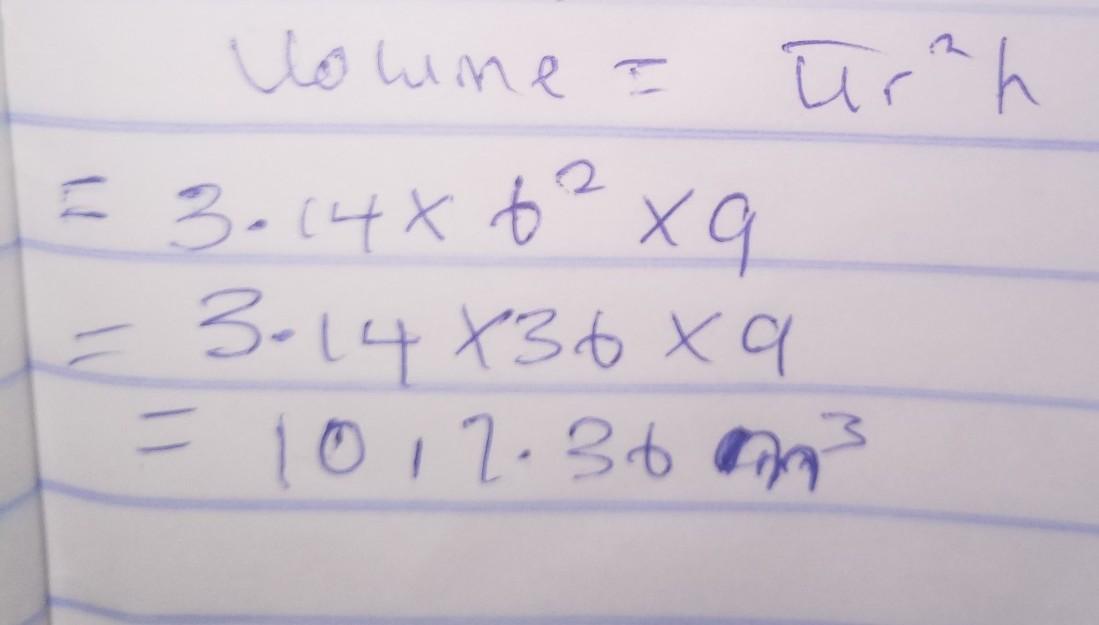 Volume = πr²h
= 3.14 × 6² × 9
= 3.14 × 36 × 9
= 1017.36 cm³